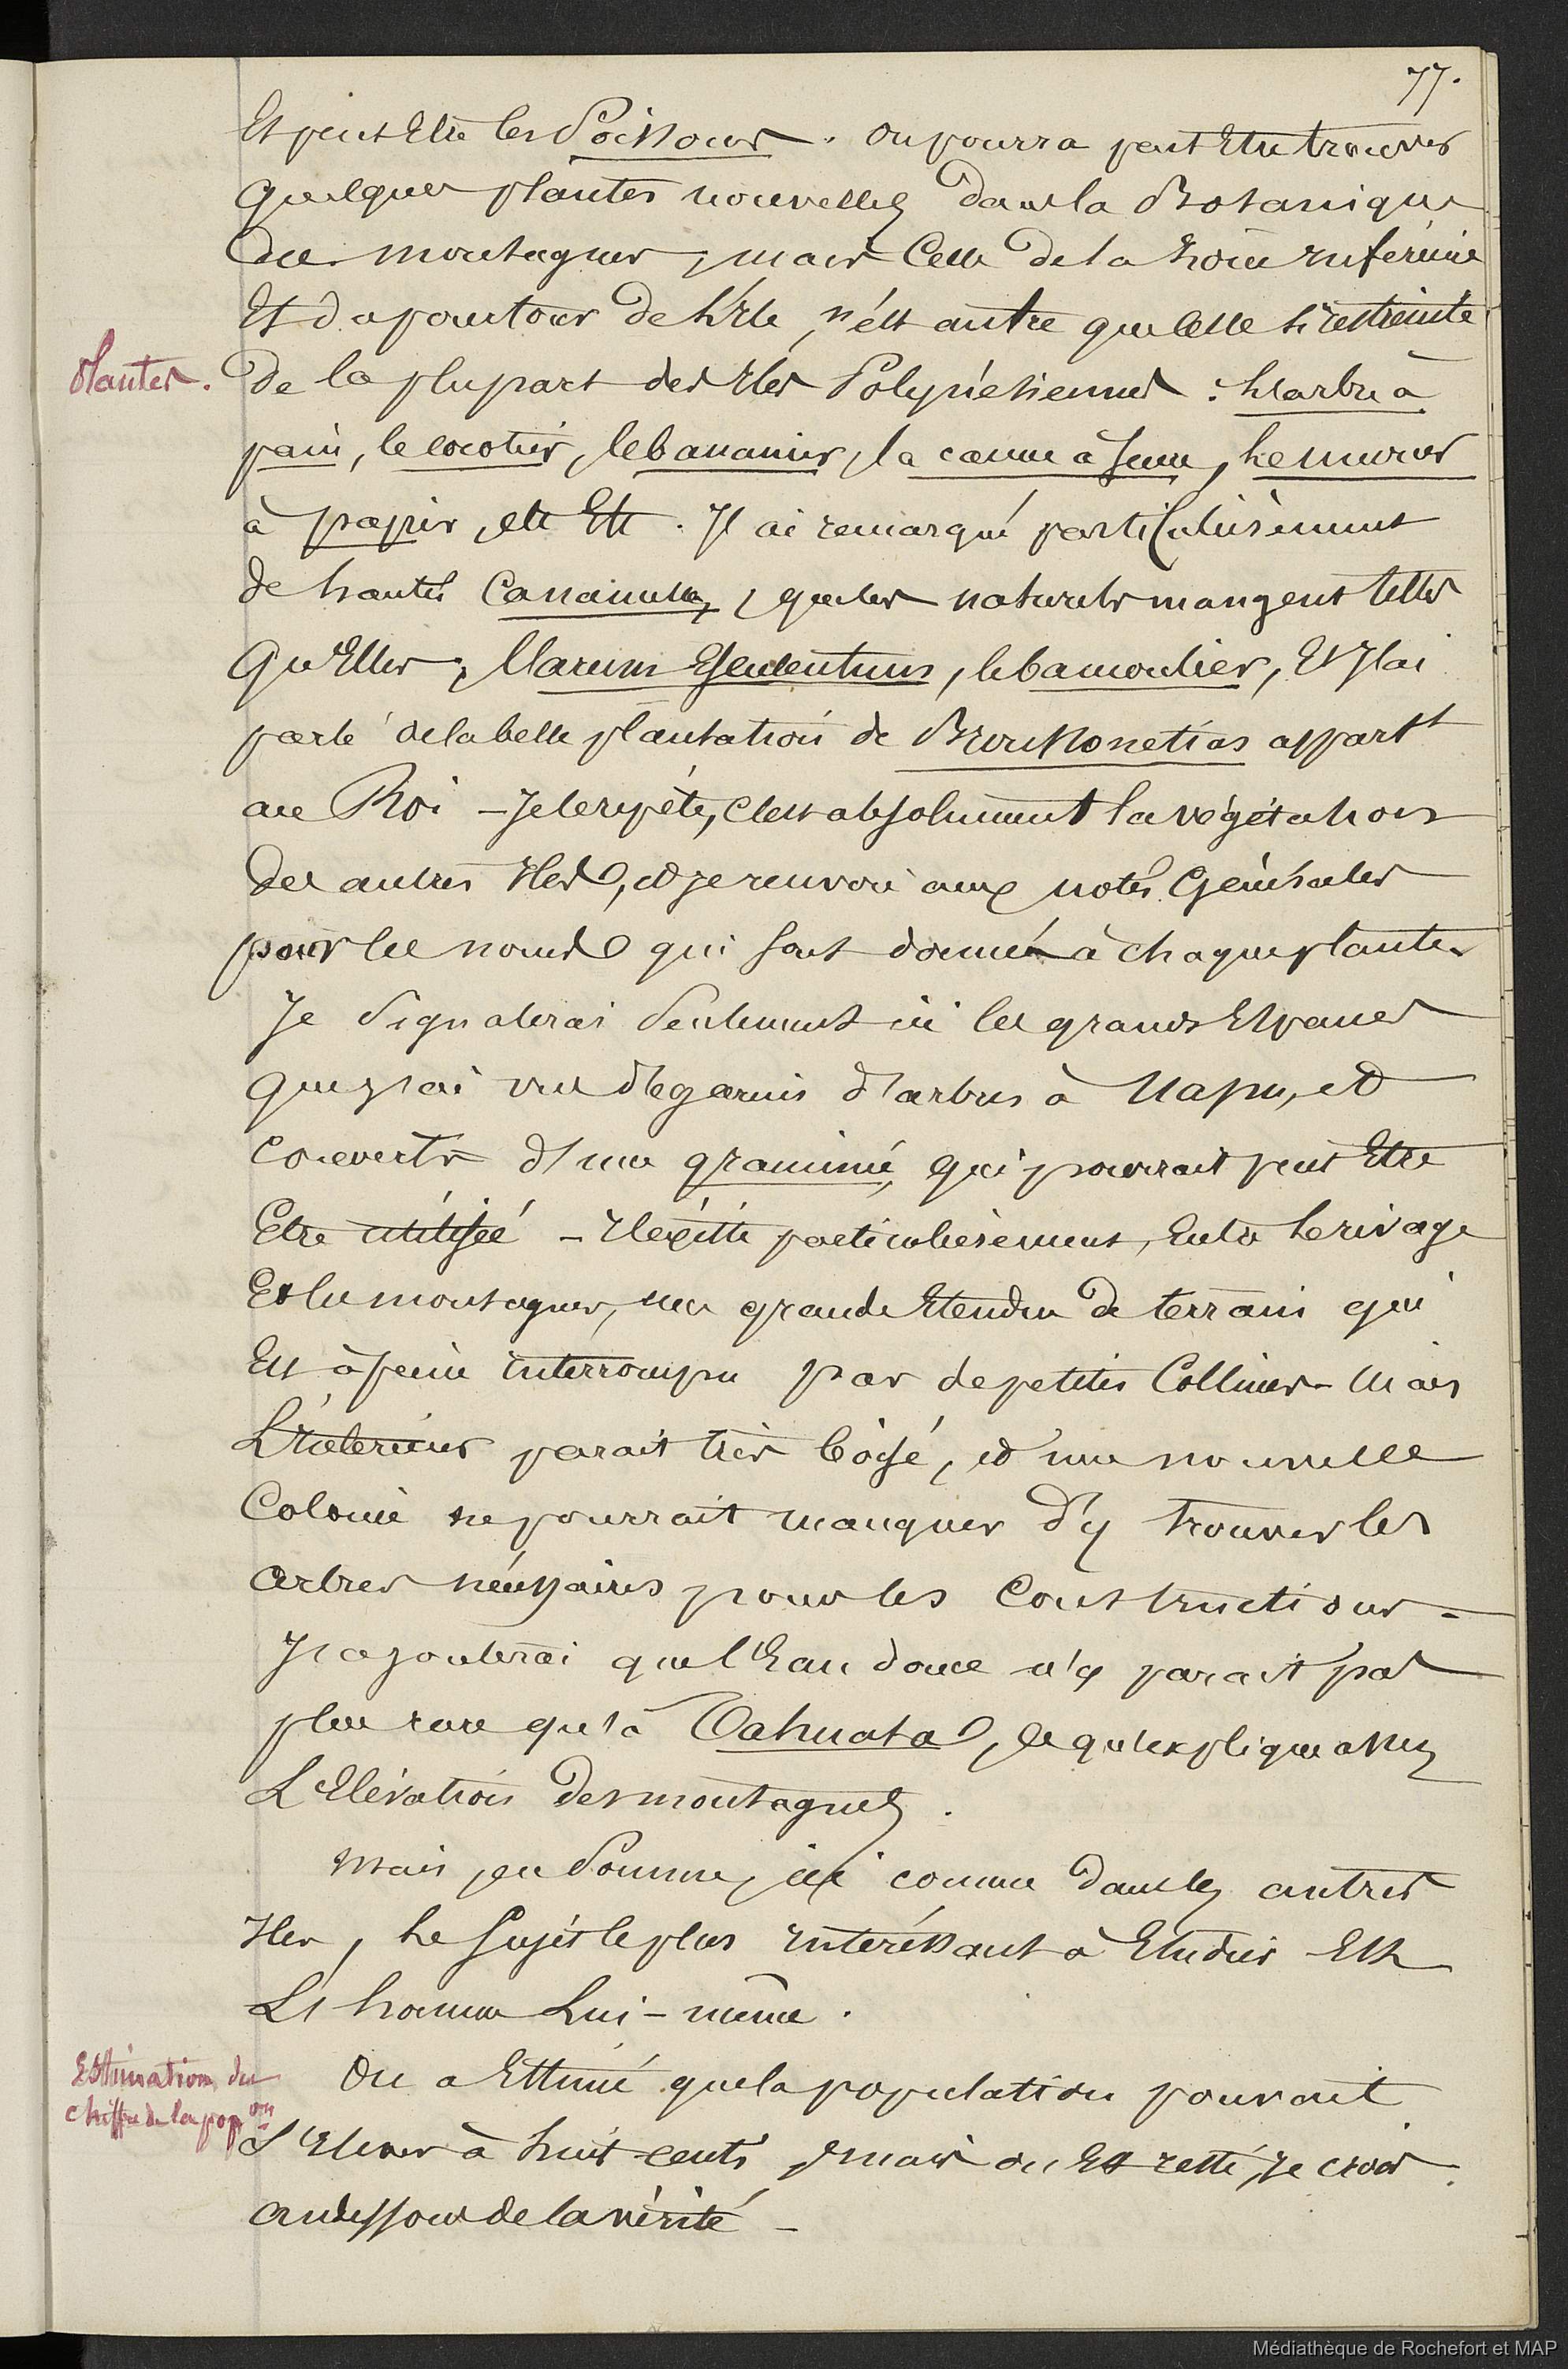 77.
Et peut Etre les Poissons. On pourra peut Etre trouver
quelques plantes nouvelles dans la Botanique
des montagnes, mais Celle de la zône inférieure
Et du pourtour de L'Ile, n'est autre que Celle si restreinte
Plantes.
de la plupart des Iles Polynésiennes : L'arbre à
pain, le cocotier, le bananier, la canne à sucre, Le murier
à papier, etc Etc. J'ai remarqué particulièrement
de hautes Cannamelles, que les naturels mangent telles
qu'Elles, l'arum Esculentum, le bancoulier, Et J'ai
parlé de la belle plantation de Broussonetias appartt
au Roi – Je le répète, C'est absolument la végétation
des autres Iles, et je renvoie aux notes Générales
pour les noms qui sont donnés à chaque plante.
Je Signalerai Seulement ici les grands Espaces
que j'ai vu dégarnis d'arbres à Uapu, et
couverts d'une graminée, qui pourrait peut Etre
Etre utilisée – Il existe particulièrement, Entre Le rivage
Et les montagnes, une grande Etendue de terrain qui
Est à peine interrompu par de petites Collines – Mais
L'Intérieur parait très boisé, et une nouvelle
Colonie ne pourrait manquer d'y trouver les
arbres nécessaires pour les Constructions –
J'ajouterai que l'Eau douce n'y parait pas
plus rare qu'à Tahuata, ce qu'explique assez
L'Elévation des montagnes.
Mais, en Somme, ici comme dans les autres
Iles, Le Sujet le plus intéressant à Etudier Est
L'homme Lui-même.
Estimation du
chiffre de la popon
On a Estimé que la population pouvait
S'Elever à huit cents, mais on Est resté, je crois
au dessous de la vérité –
Médiathèque de Rochefort et MAP